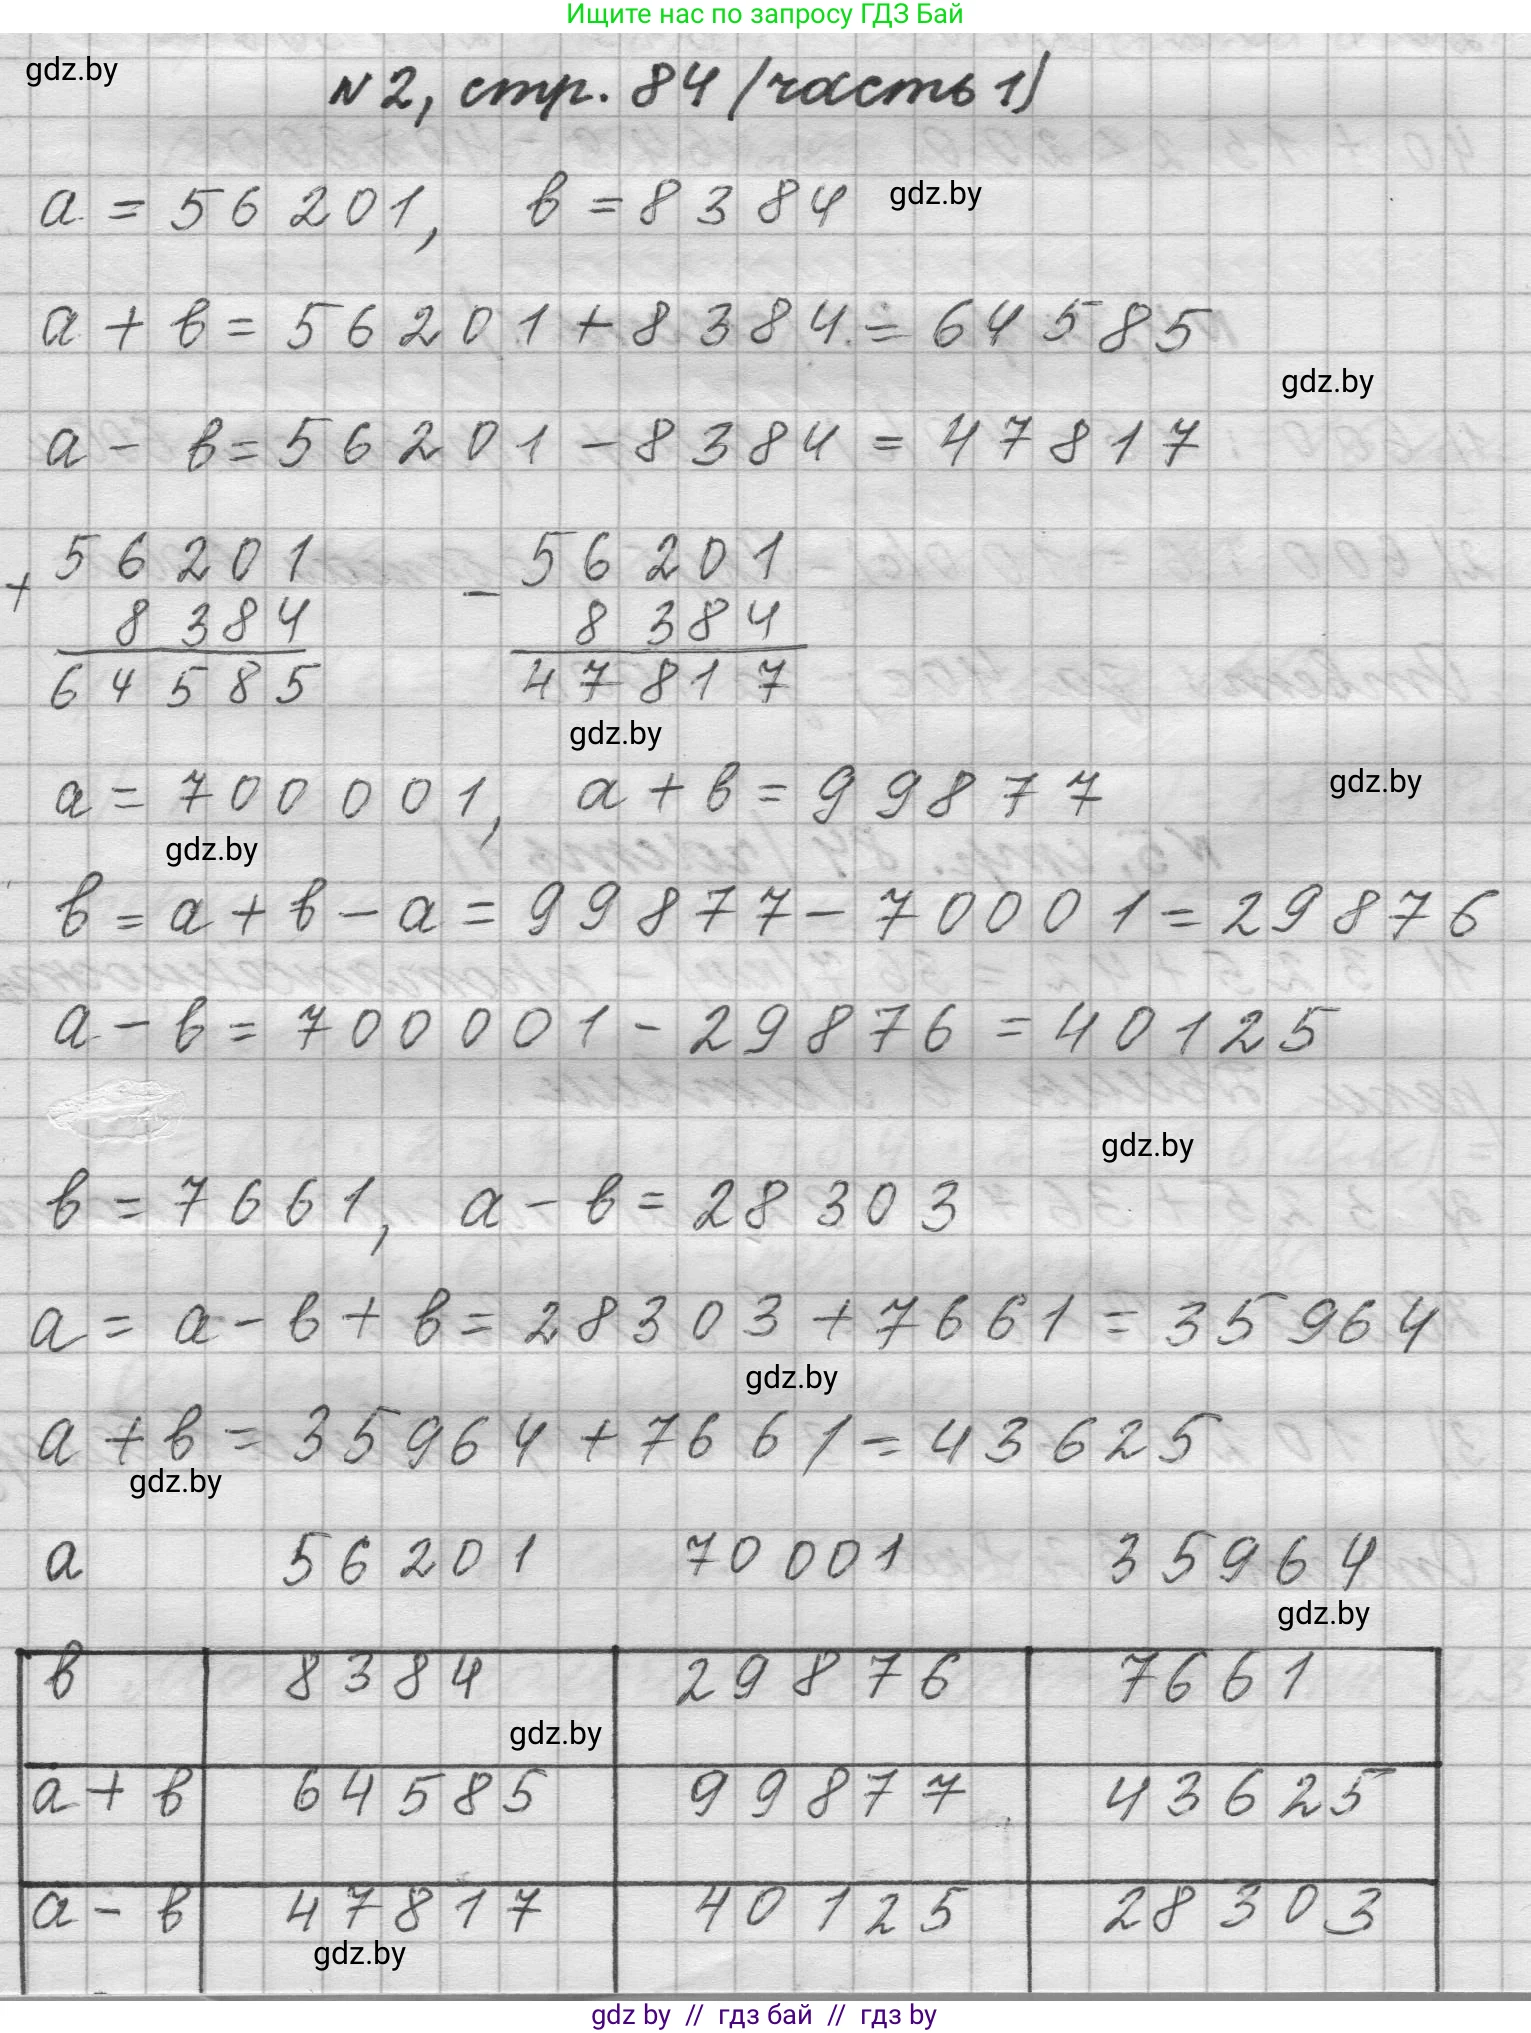 Ищите нас по запросу ГДЗ Бай
gdz.by
N2, стр. 84 (часть 1)
a = 56201, в = 8384
gdz.by
a + в = 56201 + 8384 = 64585
gdz.by
a - в = 56201 - 8384 = 47817
+ 56201 - 56201
8384 8384
64585 47817
gdz.by
a = 700001, a + в = 99877
gdz.by
gdz.by
в = a + в - a = 99877 - 70001 = 29876
a - в = 700001 - 29876 = 40125
gdz.by
в = 7661, a - в = 28303
a = a - в + в = 28303 + 7661 = 35964
gdz.by
a + в = 35964 + 7661 = 43625
gdz.by
a 56201 70001 35964
gdz.by
в 8384 29876 7661
gdz.by
a + в 64585 99877 43625
a - в 47817 40125 28303
gdz.by
gdz by // гдз бай // гдз by